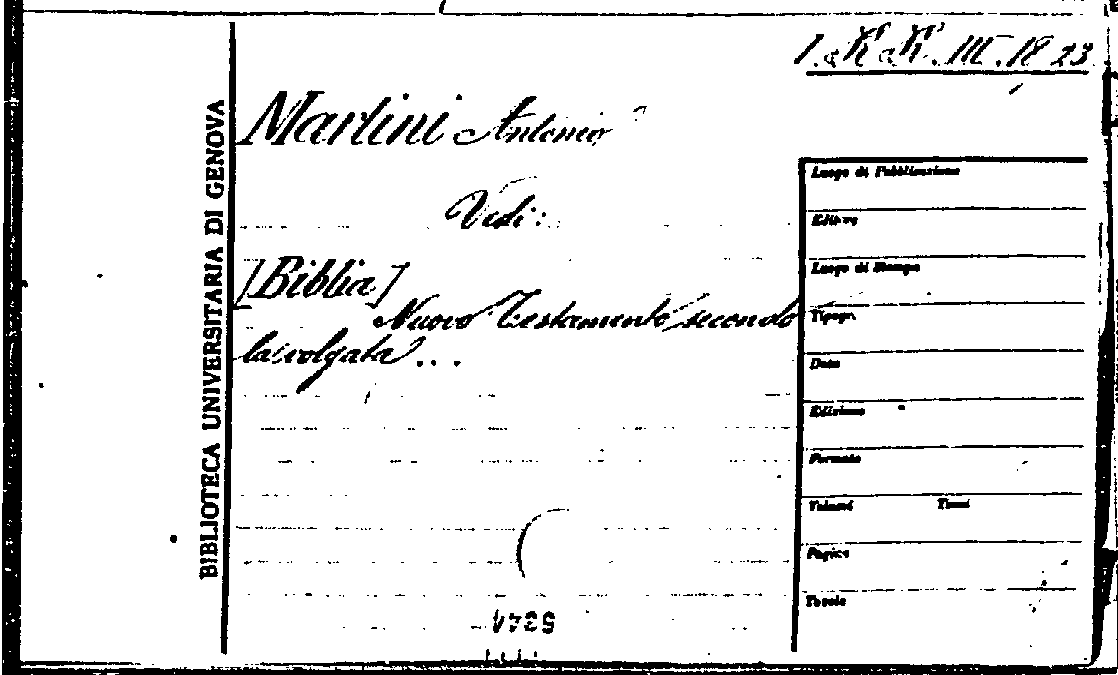 1. R. R. III. 18 23.
Martini Antonio
Vedi:
[Biblia]
Nuovo Testamento secondo
la volgata ...
BIBLIOTECA UNIVERSITARIA DI GENOVA
Luogo di Pubblicazione
Editore
Luogo di Stampa
Tipogr.
Data
Edizione
Formato
Volumi Tomi
Pagine
Tavole